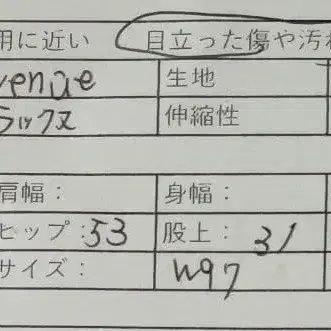 用に近い 目立った傷や汚れ
venue 生地
ラックス 伸縮性
肩幅： 身幅：
ヒップ：53 股上：31
サイズ： W97